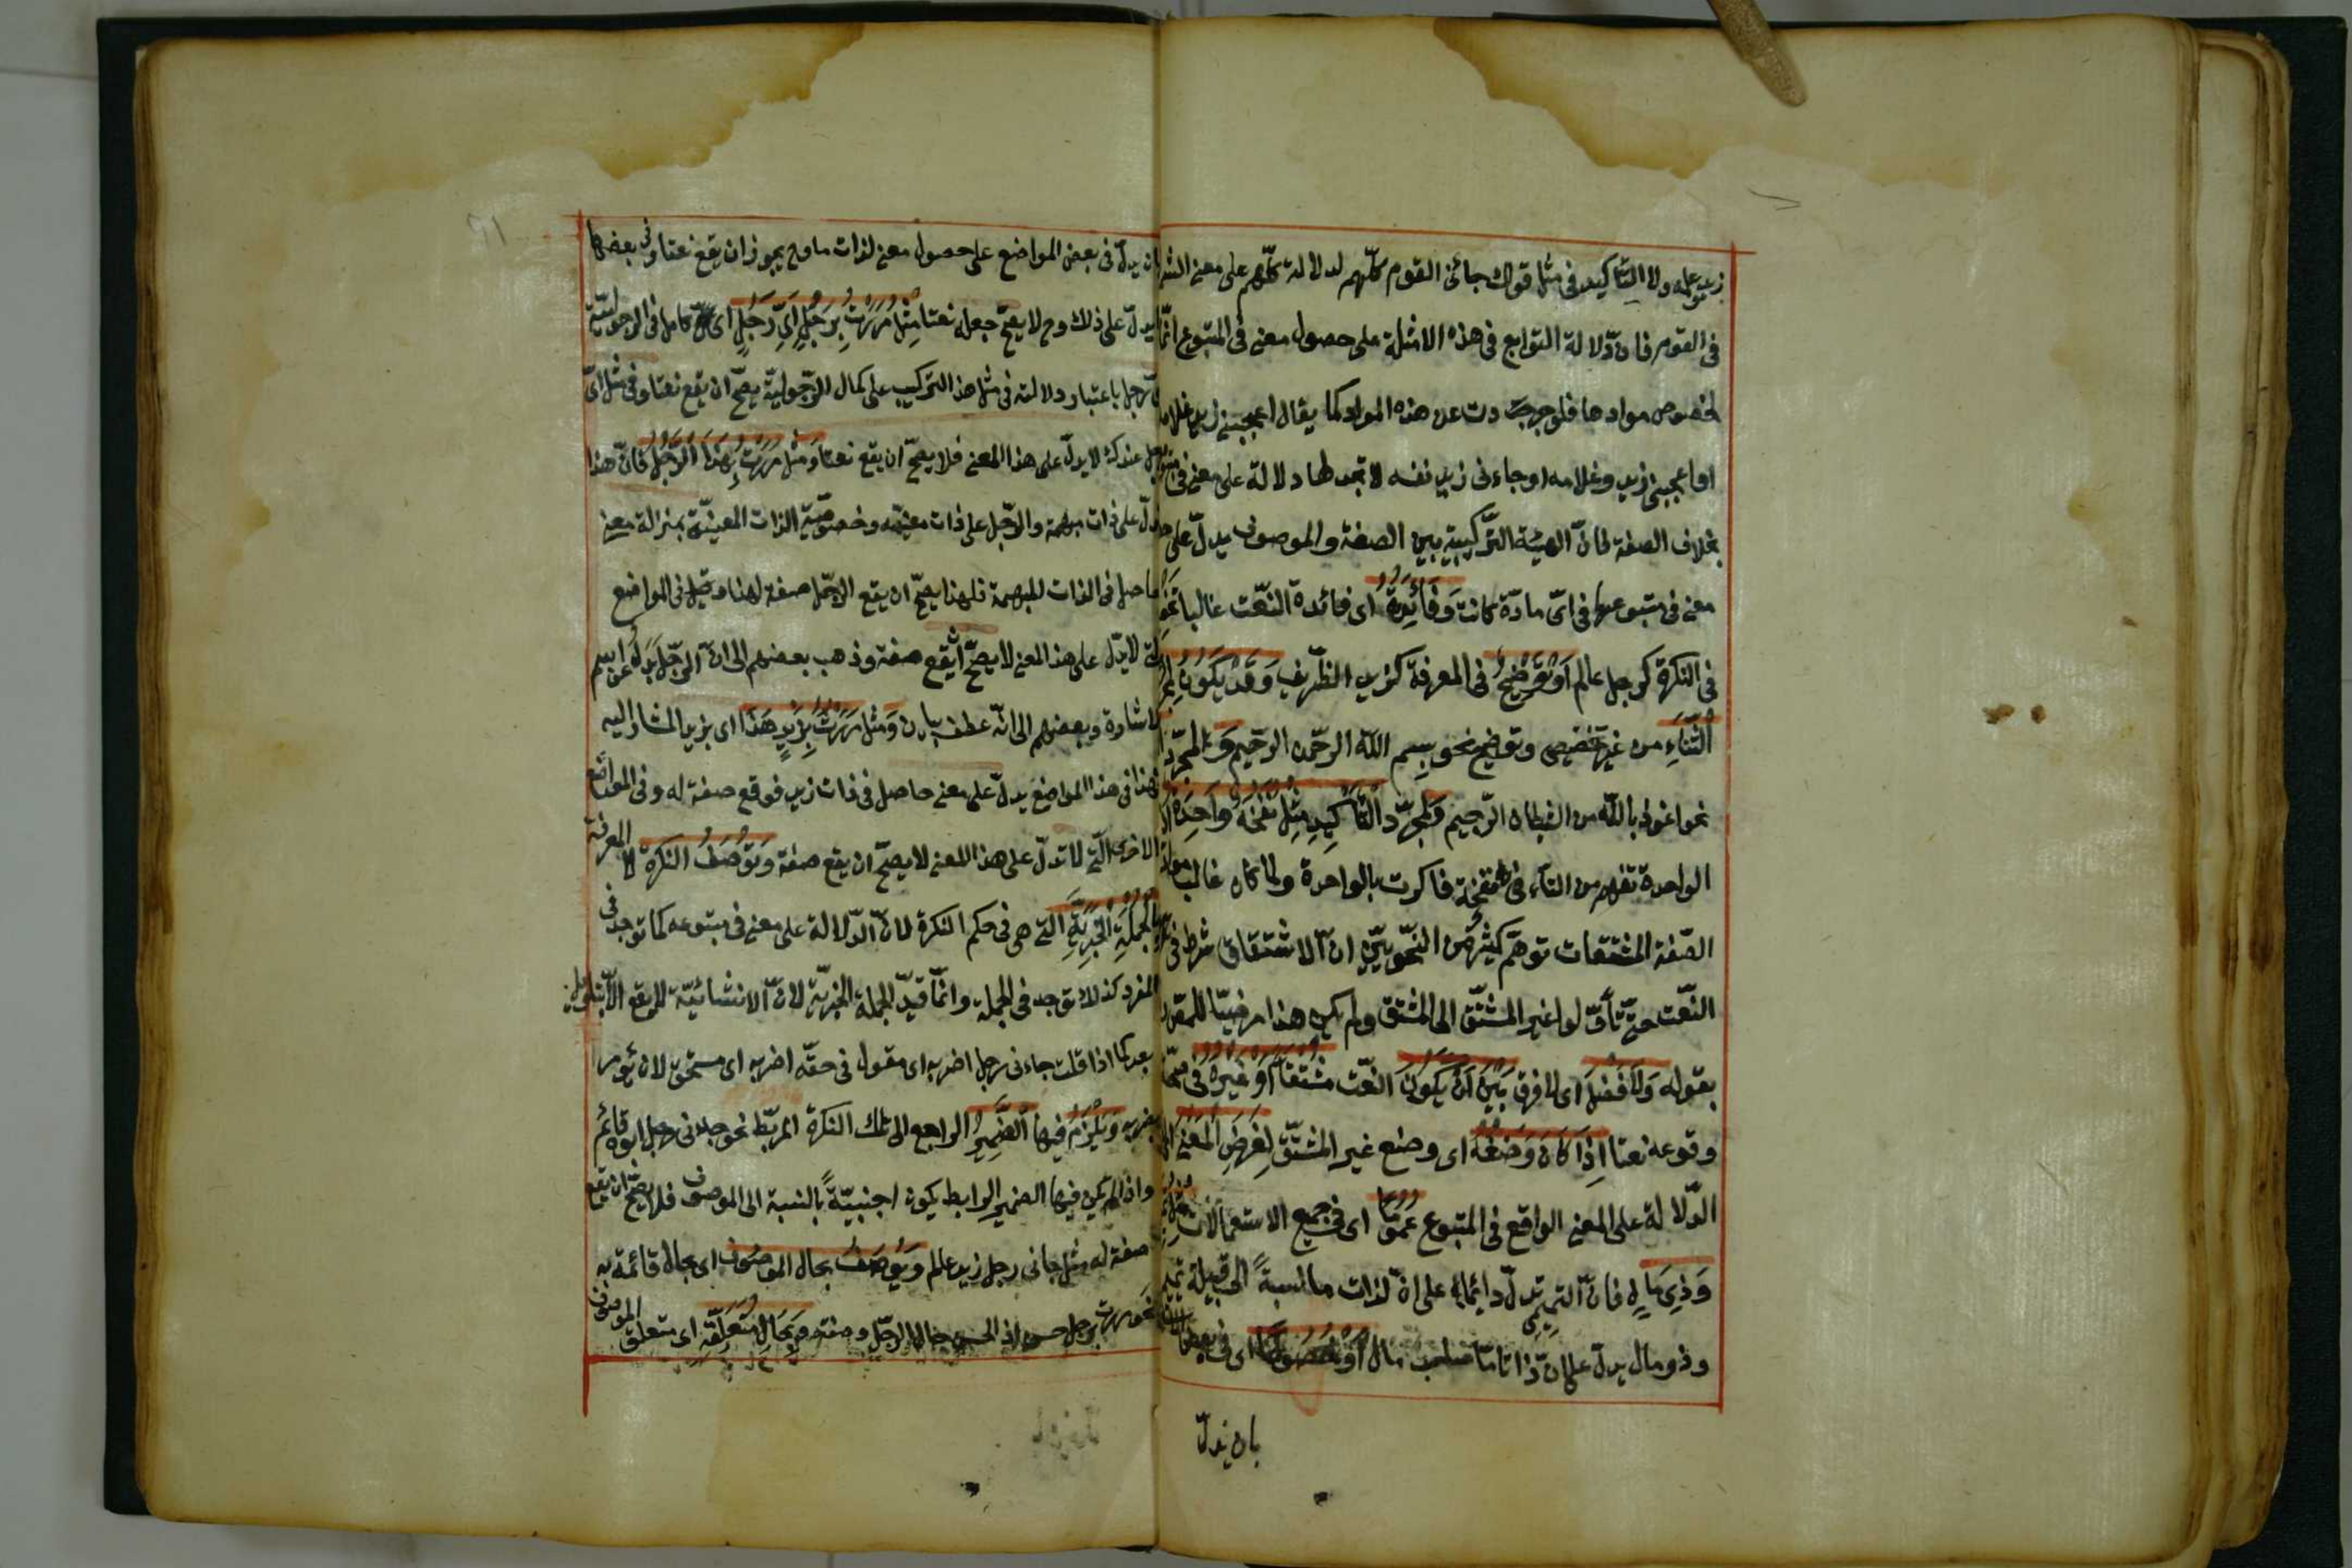 زيد وعلمه ولا التاكيد فى مثل قولك جائنى القوم كلّهم لدلالة كلّهم على معنى الشمول
فى القوم فانّ دلالة التوابع فى هذه الامثلة على حصول معنى فى المتبوع انّما
لخصوص موادها فلو جردت عن هذه المواد كما يقال اعجبنى زيد غلامه
او اعجبنى زيد وغلامه او جاءنى زيد نفسه لا تجد لها دلالة على معنى فى
بخلاف الصفة فانّ الهيئة التركيبية بين الصفة والموصوف يدلّ على
معنى فى متبوعها فى اىّ مادّة كانت وَفَائِدَتُهُ اى فائدة النعّت غالبا
فى النكرة كرجل عالم اَوْ تَوْضِيحٌ فى المعرفة كزيد الظّريف وَقَدْ يَكُونُ لِمُجَرَّدِ
الثَّنَاءِ من غير تخصيص وتوضيح نحو بِسم اللّه الرحّمن الرحّيم وَ لمجرّد
نحو اعوذ باللّه من الشيطان الرّجيم وَلمجرّد التَّأكِيدِ مِثْلُ نَفْخَةٌ وَاحِدَةٌ اذ
الواحدة تفهم من التآء فى نفخة فاكّدت بالواحدة ولما كان غالب موادّ
الصّفة المشتقات توهّم كثير من النّحويّين انّ الاشتقاق شرط فى
النّعت حتّى تأوّلوا غير المشتّق الى المشتق ولم يكن هذا مرضيّا للمص
بقوله وَلَا فَصْلَ اى لا فرق بَيْنَ اَنْ يَكُونَ النّعت مُشْتَقًّا اَوْ غَيْرَهُ فى صحّة
وقوعه نعتا اِذَا كَانَ وَضْعُهُ اى وضع غير المشتّق لِغَرَضِ الْمَعْنَى اى
الدّلالة على المعنى الواقع فى المتبوع عُمُومًا اى فى جميع الاستعمالات مثل
وَذِى مَالٍ فانّ التميمىّ يدلّ دائما على انّ لذات ما نسبةً الى قبيلة تميم
وذو مال يدلّ على انّ ذاتا مّا صاحب مال اَوْ خُصُوصًا اى فى بعض
بان يدلّ
بان يدلّ فى بعض المواضع على حصول معنى لذات ما وح يجوز ان يقع نعتا وفى بعضها
لا يدلّ على ذلك وح لا يصحّ جعله نعتا مِثْلُ مَرَرْتُ بِرَجُلٍ اَىِّ رَجُلٍ اى كامل فى الرجوليّة
فاىّ رجل باعتبار دلالته فى مثل هذا التركيب على كمال الرّجوليّة يصحّ ان يقع نعتا وفى مثل اىّ
رجل عندك لا يدلّ على هذا المعنى فلا يصحّ ان يقع نعتا وَمثل مَرَرْتُ بِهَذَا الرَّجُلِ فانّ هذا
يدلّ على ذات مبهمة والرّجل على ذات معيّنة وخصوصيّة الذات المعيّنة بمنزلة معنى
حاصل فى الذات المبهمة فلهذا يصحّ ان يقع الرّجل صفة لهذا وقيل فى المواضع
التى لا يدلّ على هذا المعنى لا يصحّ ان يقع صفة وذهب بعضهم الى انّ الرّجل بدل عن اسم
الاشارة وبعضهم الى انّه عطف بيان وَمثل مَرَرْتُ بِزَيْدٍ هَذَا اى بزيد المشار اليه
فهذا فى هذا المواضع يدلّ على معنى حاصل فى ذات زيد فوقع صفة له وفى المواضع
الاخرى الّتى لا تدلّ على هذا المعنى لا يصحّ ان يقع صفة وَتُوْصَفُ النكرة لا المعرفة
بِالْجُمْلَةِ الْخَبَرِيَّةِ التى هى فى حكم النكرة لانّ الدّلالة على معنى فى متبوعه كما توجد فى
المفرد كذلك توجد فى الجملة وانّما قيّد الجملة بالخبريّة لانّ الانشائيّة لا يقع الّا بتاويل
بعيد كما اذا قلت جاءنى رجل اضربه اى مقول فى حقّه اضربه اى مستحق لان يؤمر
بضربه وَيَلْزَمُ فيها الضَّمِيرُ الراجع الى تلك النكرة للربّط نحو جاءنى رجل ابوه قائم
واذا لم يكن فيها الضمير الرابط يكون اجنبيّةً بالنسبة الى الموصوف فلا يصحّ ان يقع
صفة له مثل جانى رجل زيد عالم وَيُوصَفُ بحال الموصوف اى بحال قائمة به
نحو مررت برجل حسن اذ الحسن حال الرجّل وصفته وَبِحَالِ مُتَعَلِّقِهِ اى متعلق الموصوف